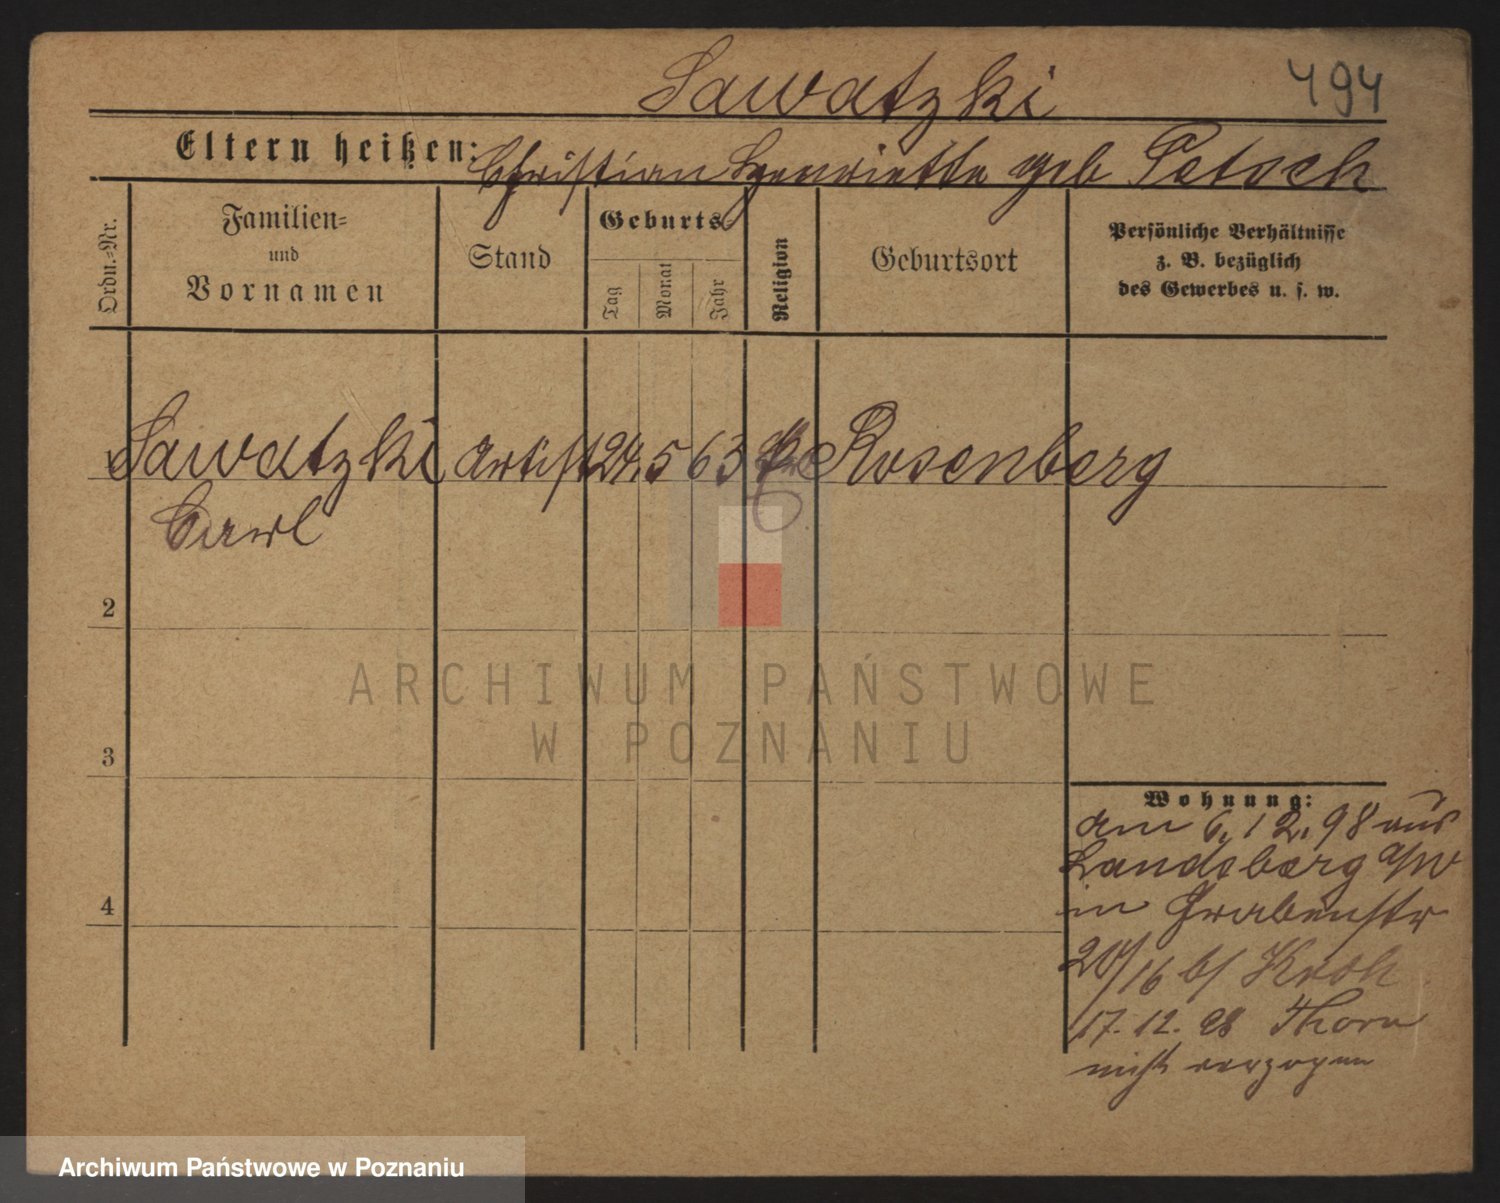 Sawatzki
494
Eltern heißen: Christian Henriette geb Petsch
Ordn.-Nr.
Familien-
und
Vornamen
Stand
Geburts-
Tag
Monat
Jahr
Religion
Geburtsort
Persönliche Verhältnisse
z. B. bezüglich
des Gewerbes u. s. w.
Sawatzki Artist 24. 5 63 Rosenberg
Carl
2
3
4
Wohnung:
am 6. 12. 98 aus
Landsberg a/W
in Grabenstr
20/16 b/ Kroh
17. 12. 98 Thorn
nicht verzogen
ARCHIWUM PAŃSTWOWE
W POZNANIU
Archiwum Państwowe w Poznaniu